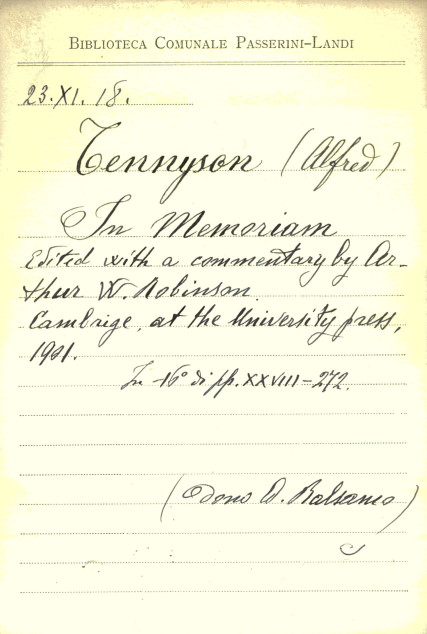 BIBLIOTECA COMUNALE PASSERINI-LANDI
23.XI.18.
Tennyson (Alfred)
In Memoriam
Edited with a commentary by Ar-
thur W. Robinson.
Cambrige, at the University press,
1901.
In -16° di pp. XXVIII-272.
(Dono D. Balsamo)